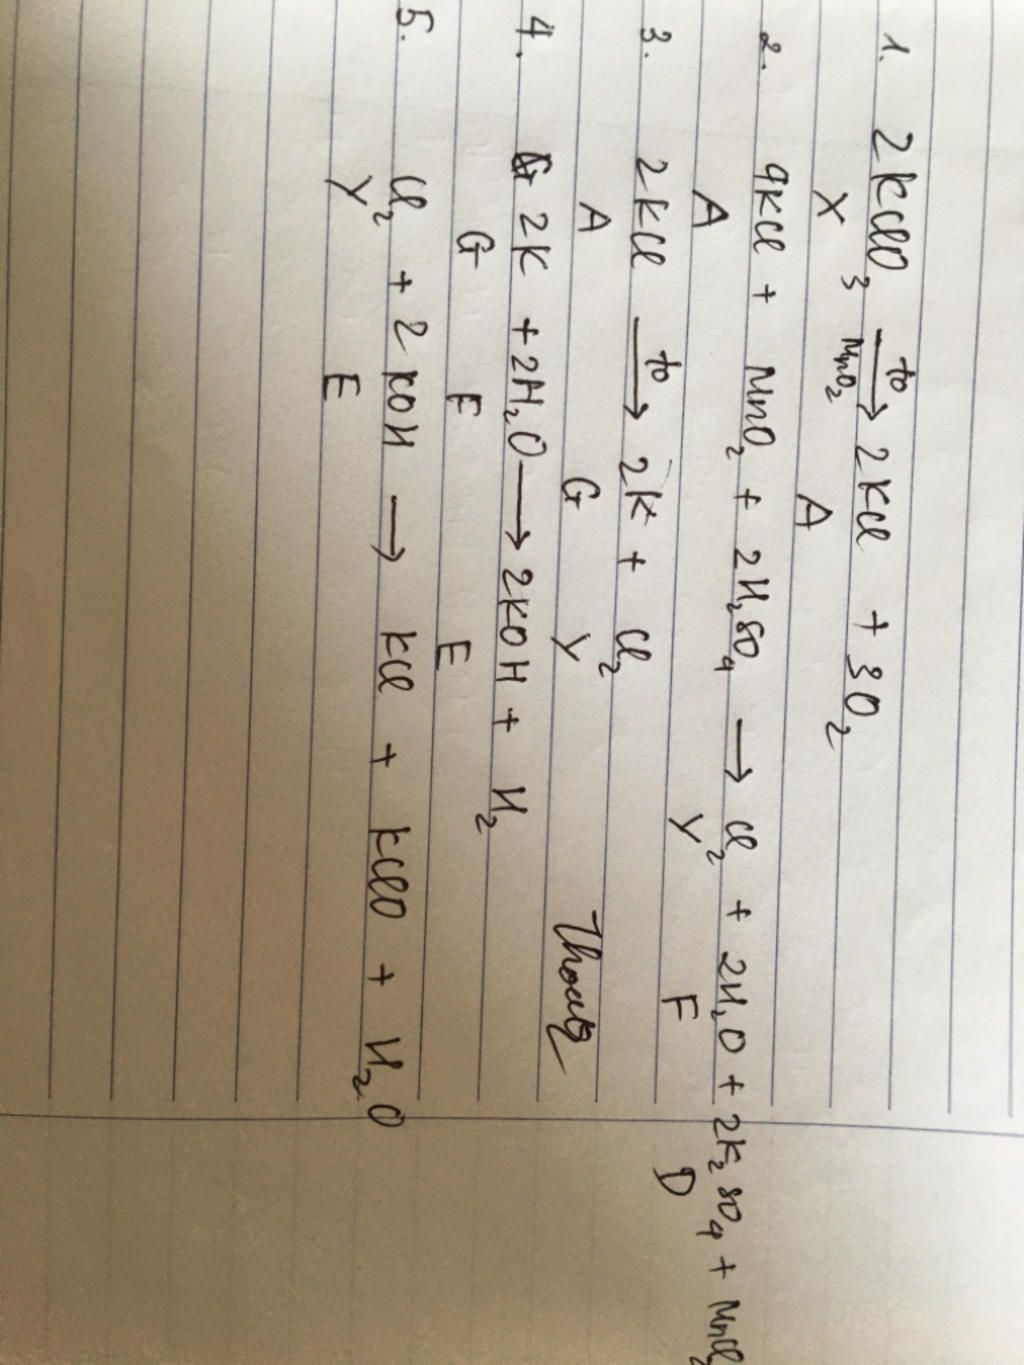 1. 2KClO3 →(to, MnO2) 2KCl + 3O2
X A
2. 4KCl + MnO2 + 2H2SO4 → Cl2 + 2H2O + 2K2SO4 + MnCl2
A Y F D
3. 2KCl →(to) 2K + Cl2
A G Y
4. 2K + 2H2O → 2KOH + H2
G F E
5. Cl2 + 2KOH → KCl + KClO + H2O
Y E